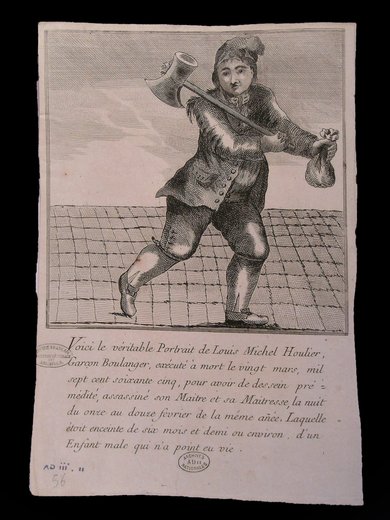 Voici le véritable Portrait de Louis Michel Houlier,
Garçon Boulanger, exécuté à mort le vingt mars, mil
sept cent soixante cinq, pour avoir de dessein pré-
médité, assassiné son Maitre et sa Maitresse, la nuit
du onze au douze février de la même añée. Laquelle
étoit enceinte de six mois et demi ou environ, d'un
Enfant male qui n'a point eu vie.
AD III. 11
56
ARCHIVES
NATIONALES